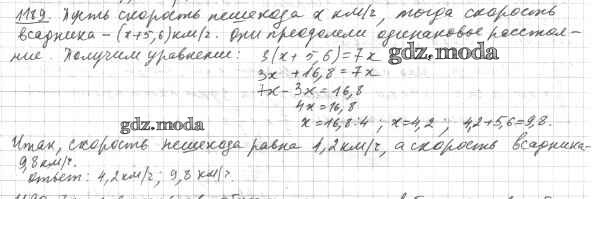 1189. Пусть скорость пешехода x км/г, тогда скорость
всадника – (x+5,6) км/г. Они преодолели одинаковые расстоя-
ние. Получим уравнение: 3(x + 5,6) = 7x
gdz.moda
3x + 16,8 = 7x
7x - 3x = 16,8
4x = 16,8
gdz.moda
x = 16,8 : 4 ; x = 4,2 ; 4,2 + 5,6 = 9,8.
Итак, скорость пешехода равна 1,2 км/г, а скорость всадника-
9,8 км/г.
Ответ: 4,2 км/г; 9,8 км/г.